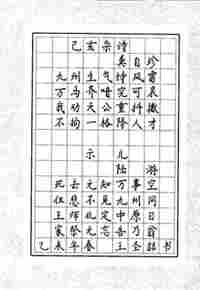 己亥杂诗
龚自珍
九州生气恃风雷
万马齐喑究可哀
我劝天公重抖擞
不拘一格降人才
示儿
陆游
死去元知万事空
但悲不见九州同
王师北定中原日
家祭无忘告乃翁
书